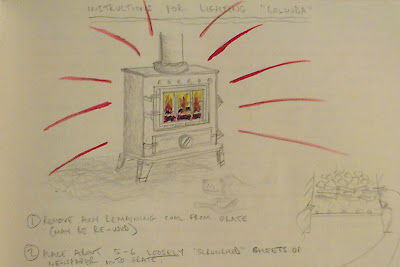 INSTRUCTIONS FOR LIGHTING "COLUMBA"
① REMOVE ANY REMAINING COAL FROM GRATE
(MAY BE RE-USED)
② PLACE ABOUT 5-6 LOOSELY "SCRUNCHED" SHEETS OF
NEWSPAPER INTO GRATE.